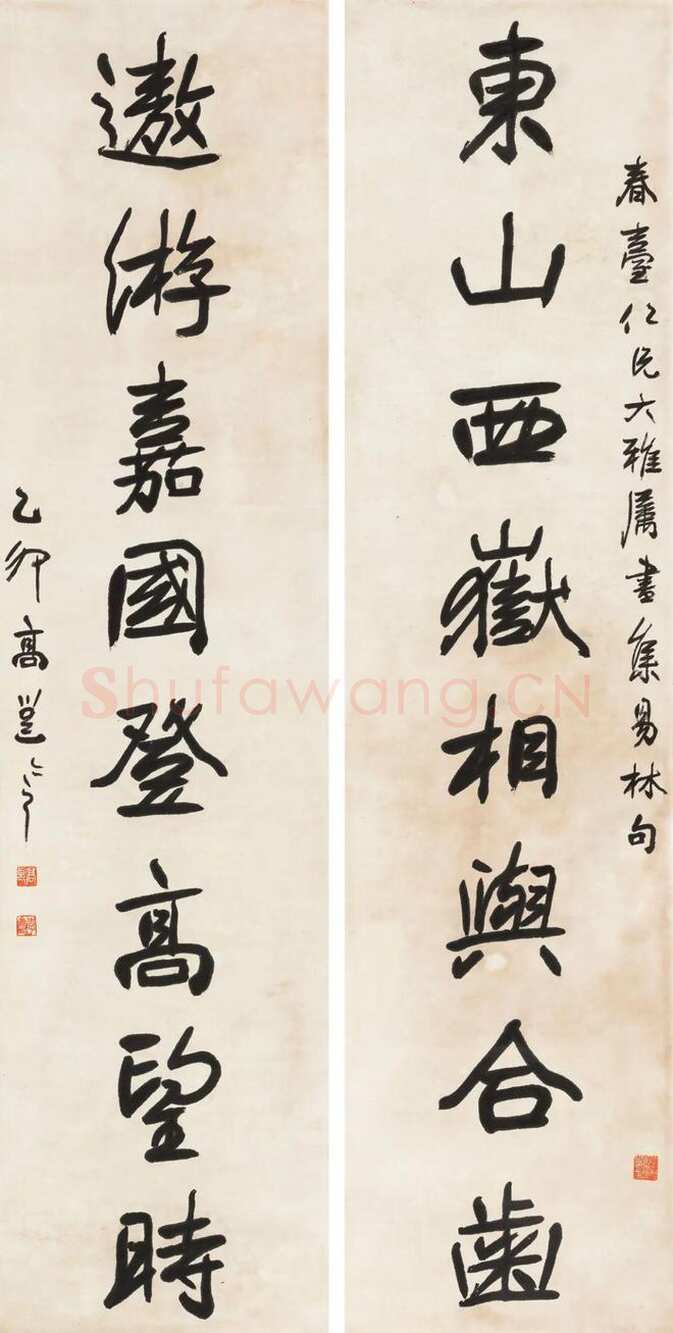 春臺仁兄大雅屬書集易林句
東山西嶽相與合齒
遨游嘉國登高望時
乙卯高邕
Shufawang.CN